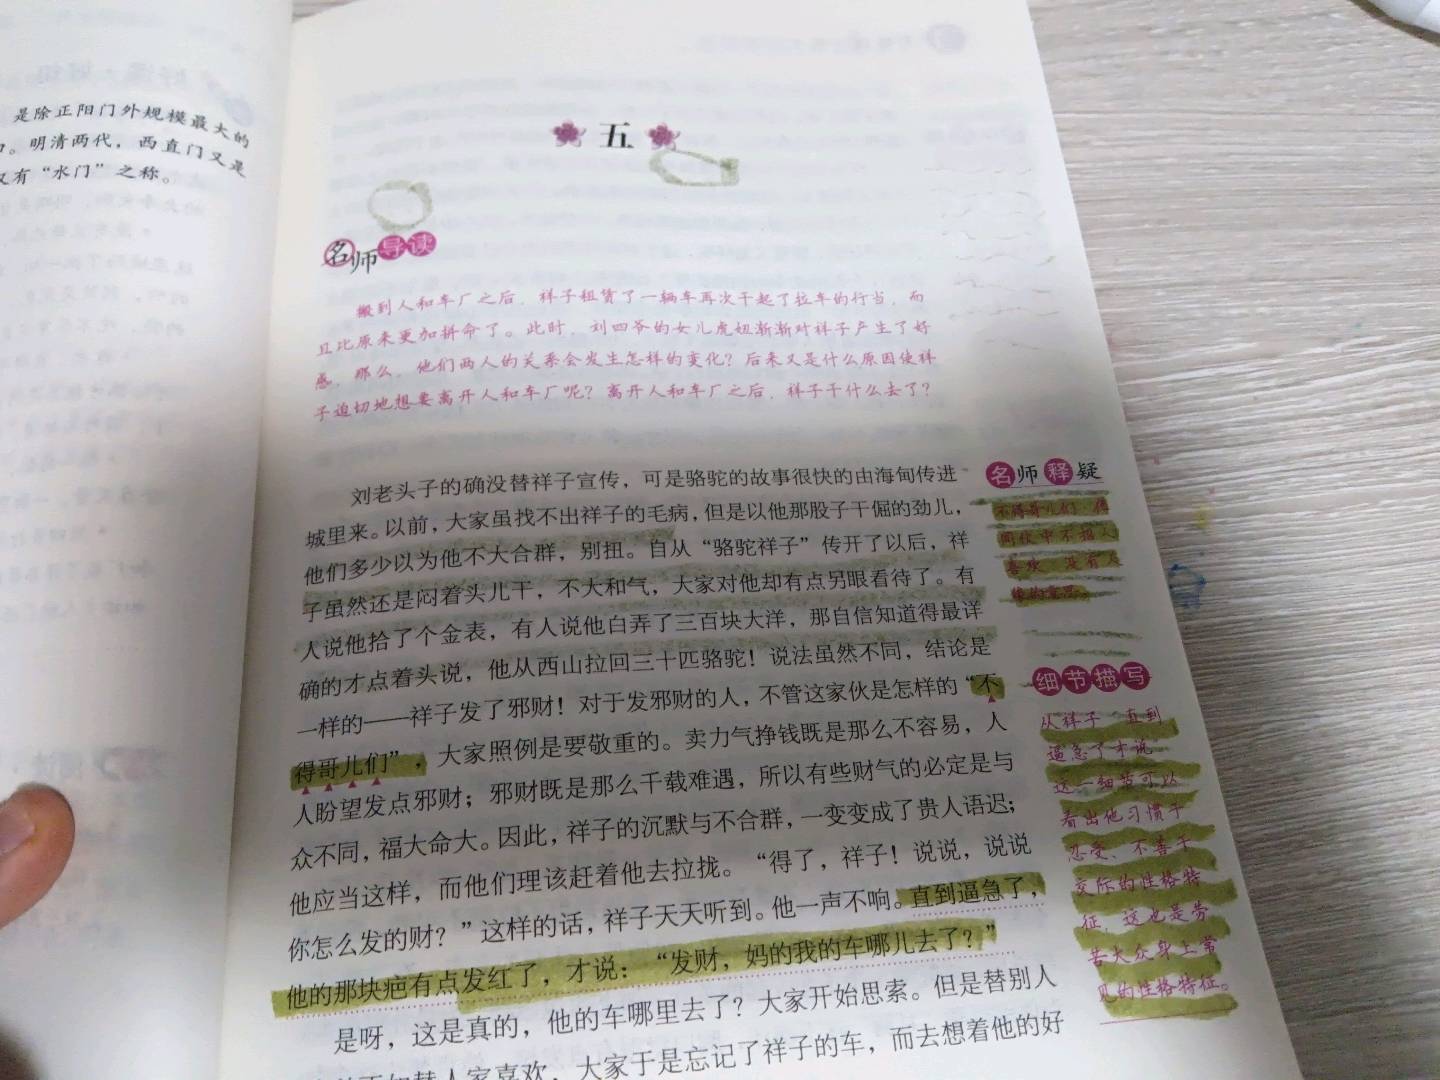 是除正阳门外规模最大的
。明清两代，西直门又是
又有“水门”之称。
五
名师导读
搬到人和车厂之后，祥子租赁了一辆车再次干起了拉车的行当，而
且比原来更加拼命了。此时，刘四爷的女儿虎妞渐渐对祥子产生了好
感，那么，他们两人的关系会发生怎样的变化？后来又是什么原因使祥
子迫切地想要离开人和车厂呢？离开人和车厂之后，祥子干什么去了？
刘老头子的确没替祥子宣传，可是骆驼的故事很快的由海甸传进
城里来。以前，大家虽找不出祥子的毛病，但是以他那股子干倔的劲儿，
他们多少以为他不大合群，别扭。自从“骆驼祥子”传开了以后，祥
子虽然还是闷着头儿干，不大和气，大家对他却有点另眼看待了。有
人说他拾了个金表，有人说他白弄了三百块大洋，那自信知道得最详
确的才点着头说，他从西山拉回三十匹骆驼！说法虽然不同，结论是
一样的——祥子发了邪财！对于发邪财的人，不管这家伙是怎样的“不
得哥儿们”，大家照例是要敬重的。卖力气挣钱既是那么不容易，人
人盼望发点邪财；邪财既是那么千载难遇，所以有些财气的必定是与
众不同，福大命大。因此，祥子的沉默与不合群，一变变成了贵人语迟；
他应当这样，而他们理该赶着他去拉拢。“得了，祥子！说说，说说
你怎么发的财？”这样的话，祥子天天听到。他一声不响。直到逼急了，
他的那块疤有点发红了，才说：“发财，妈的我的车哪儿去了？”
是呀，这是真的，他的车哪里去了？大家开始思索。但是替别人
替人家喜欢，大家于是忘记了祥子的车，而去想着他的好
名师释疑
不得哥儿们：
同伙中不招人
喜欢，没有人
缘的意思。
细节描写
从祥子一直到
逼急了才说
这一细节可以
看出他习惯于
忍受、不善于
交际的性格特
征，这也是劳
苦大众身上常
见的性格特征。